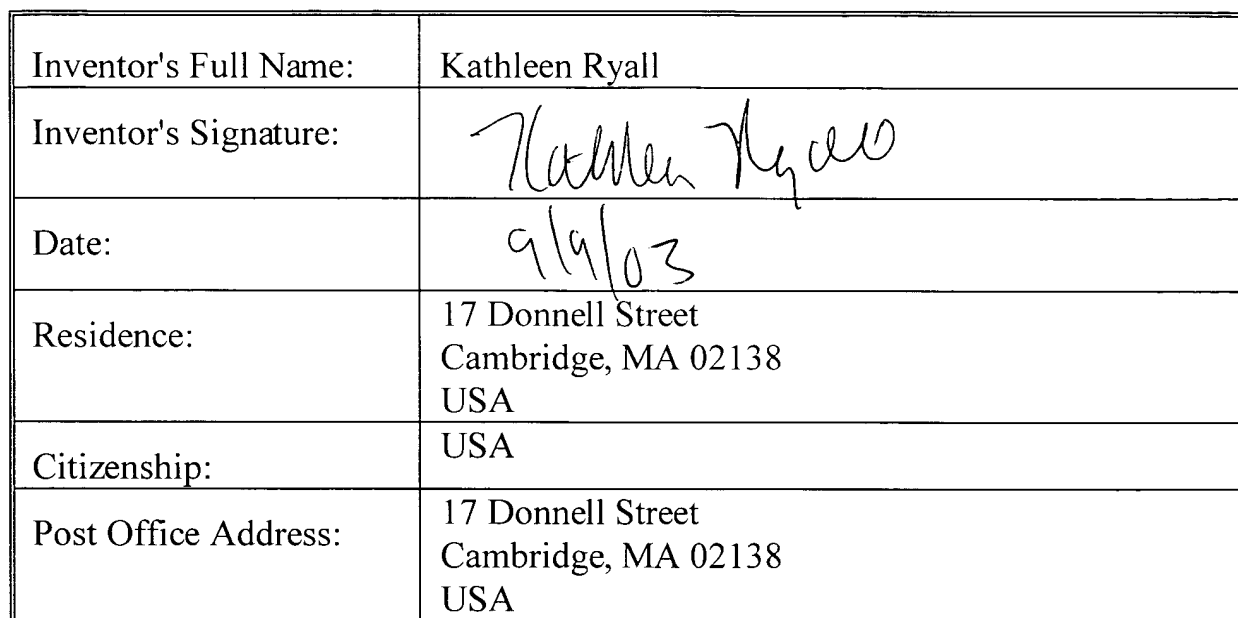 Inventor's Full Name: Kathleen Ryall
Inventor's Signature: Kathleen Ryall
Date: 9/9/03
Residence: 17 Donnell Street
Cambridge, MA 02138
USA
Citizenship: USA
Post Office Address: 17 Donnell Street
Cambridge, MA 02138
USA